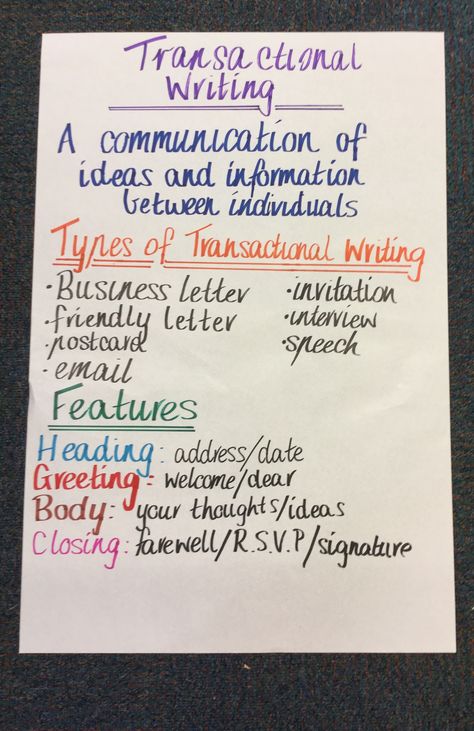 Transactional
Writing
A communication of
ideas and information
between individuals
Types of Transactional Writing
· Business letter
· friendly letter
· postcard
· email
· invitation
· interview
· speech
Features
Heading: address/date
Greeting: welcome/dear
Body: your thoughts/ideas
Closing: farewell/R.S.V.P/signature